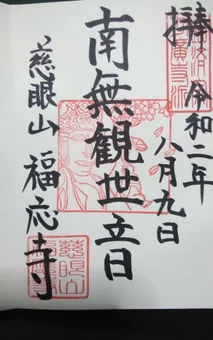 奉拝 令和二年
八月九日
南無観世音
慈眼山 福応寺